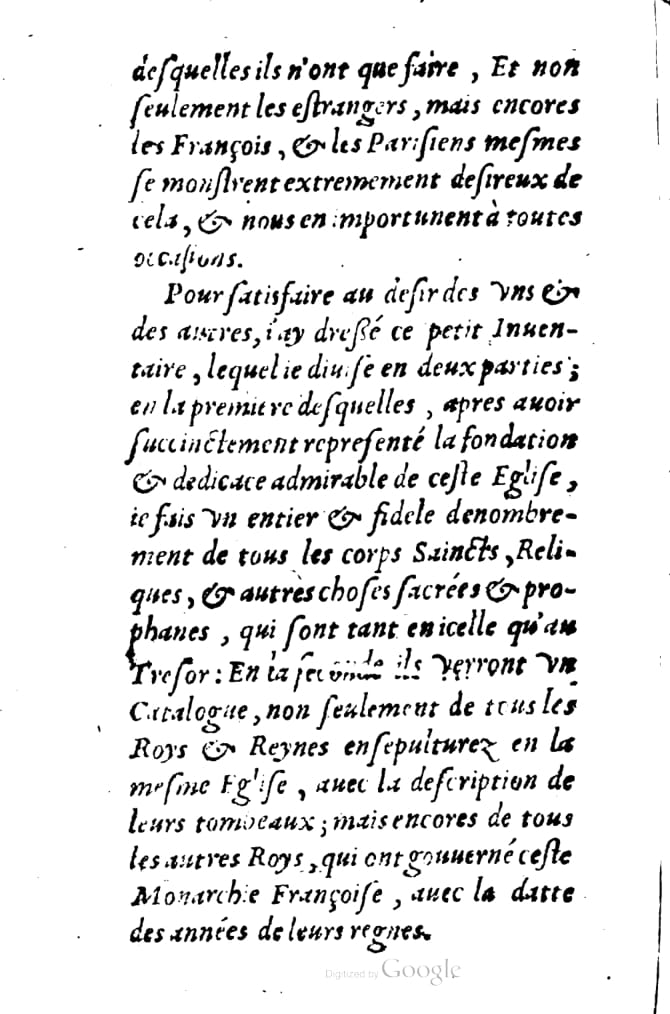 deſquelles ils n'ont que faire, Et non
ſeulement les eſtrangers, mais encores
les François, & les Pariſiens meſmes
ſe monſtrent extremement deſireux de
cela, & nous en importunent à toutes
occaſions.
Pour ſatisfaire au deſir des vns &
des autres, i'ay dreſſé ce petit Inuen-
taire, lequel ie diuiſe en deux parties;
en la premiere deſquelles, apres auoir
ſuccinctement repreſenté la fondation
& dedicace admirable de ceſte Egliſe,
ie fais vn entier & fidele denombre-
ment de tous les corps Saincts, Reli-
ques, & autres choſes ſacrées & pro-
phanes, qui ſont tant en icelle qu'au
Treſor: En la ſeconde ils verront vn
Catalogue, non ſeulement de tous les
Roys & Reynes enſepulturez en la
meſme Egliſe, auec la deſcription de
leurs tombeaux; mais encores de tous
les autres Roys, qui ont gouuerné ceſte
Monarchie Françoiſe, auec la datte
des années de leurs regnes.
Digitized by Google